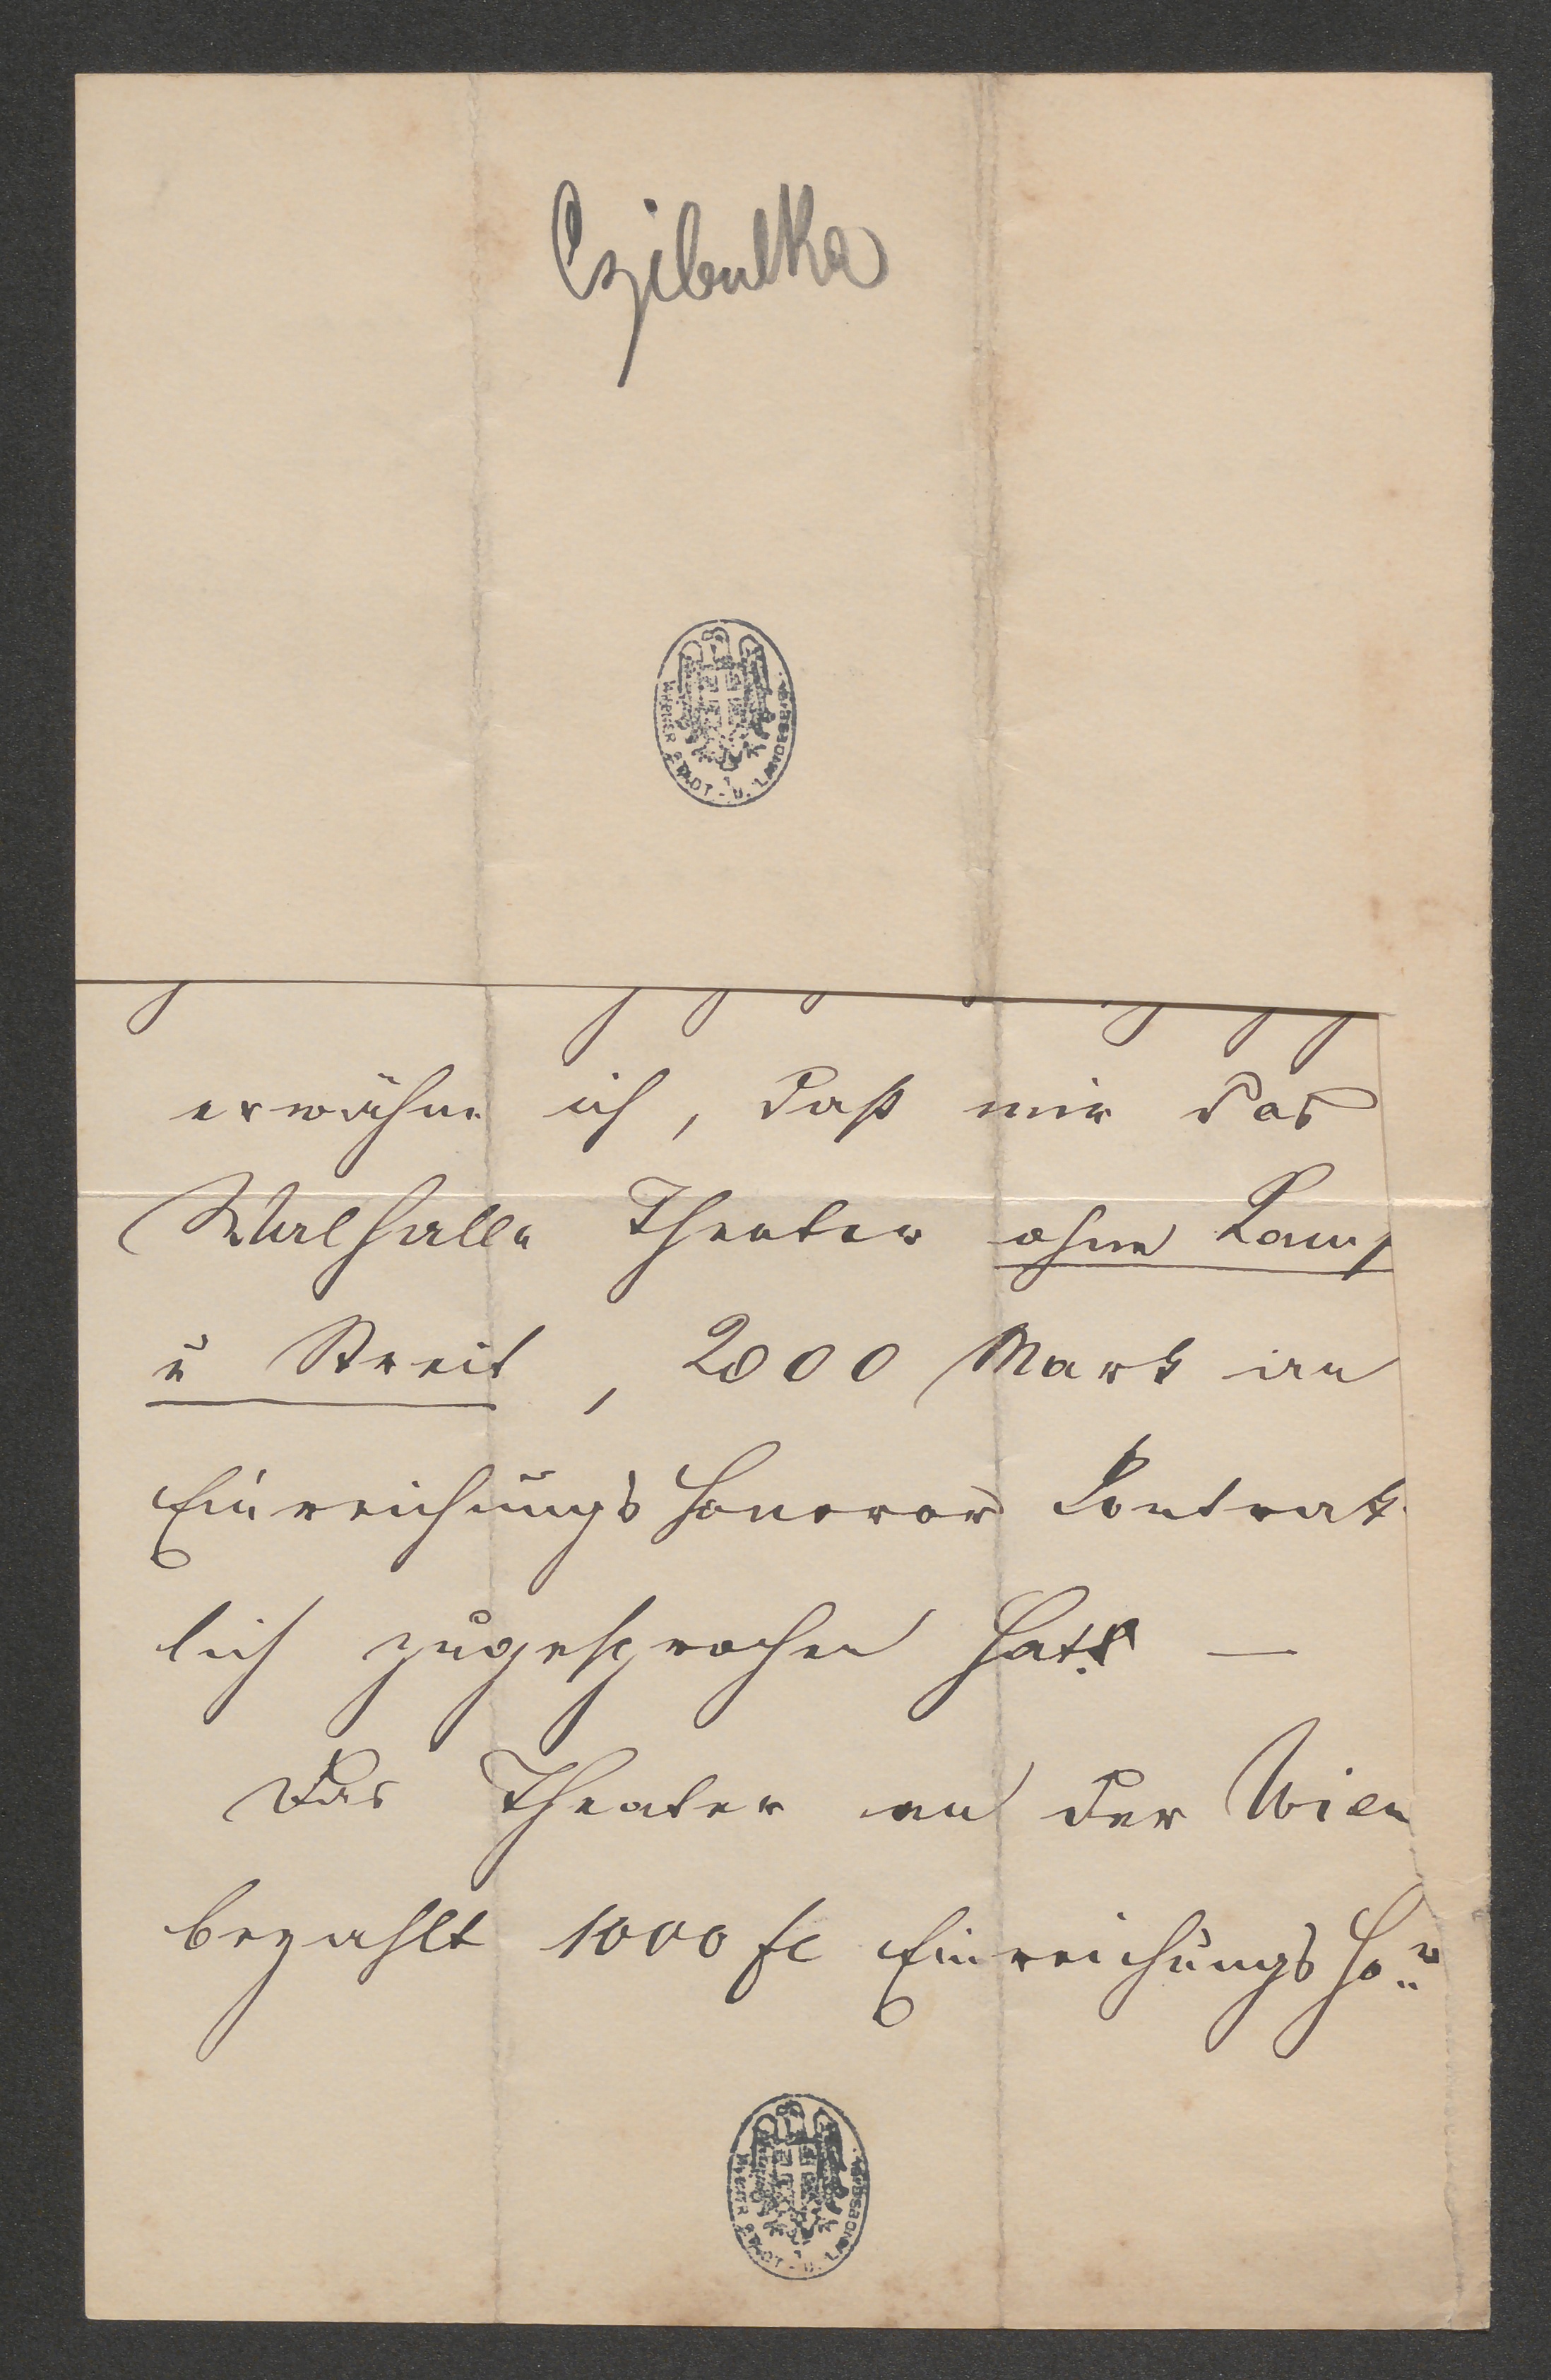 Czibulka
WIENER STADT- U. LANDESBIBL.
erwähne ich, daß mir das
Walhalla Theater ohne Kampf
u Streit, 2000 Mark an
Einreichungs Honorar Kontrakt
lich zugesprochen hat. —
Das Theater an der Wien
bezahlt 1000 fl Einreichungs Ho=
WIENER STADT- U. LANDESBIBL.